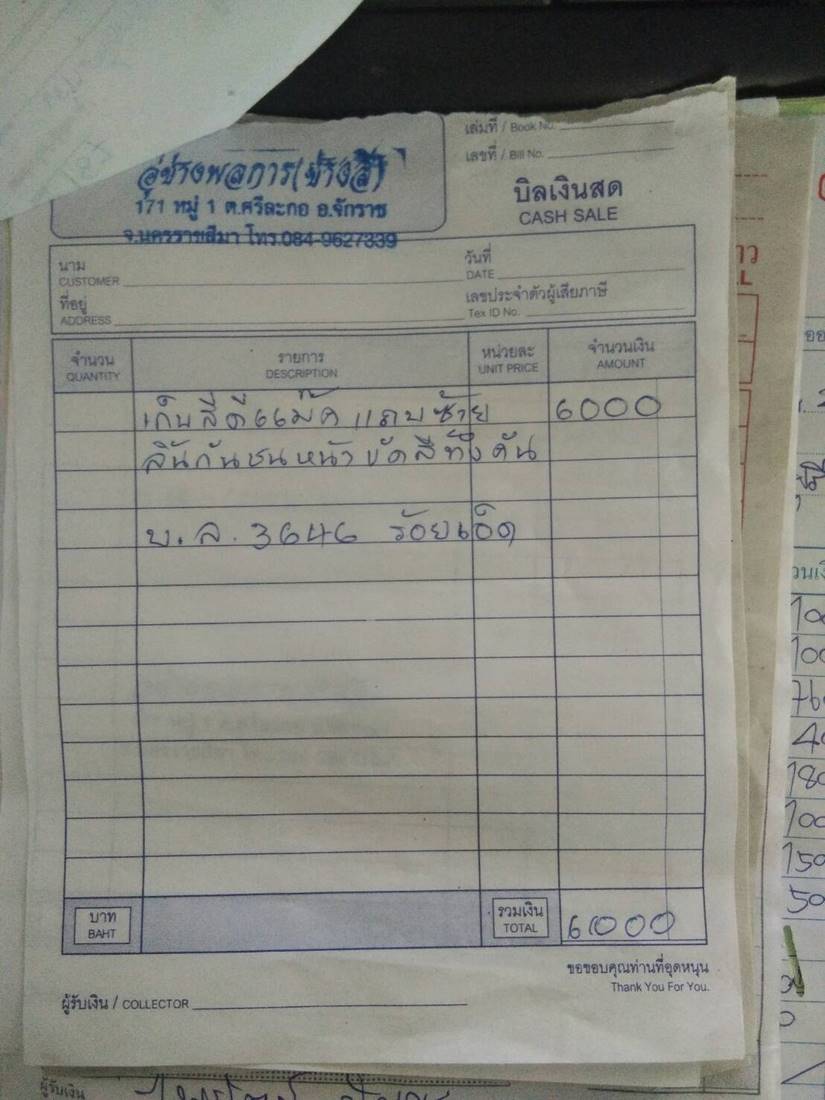 เล่มที่ / Book No.
เลขที่ / Bill No.
อู่ช่างพลการ(ช่างสี)
171 หมู่ 1 ต.ศรีละกอ อ.จักราช
จ.นครราชสีมา โทร.084-9627339
บิลเงินสด
CASH SALE
นาม
CUSTOMER
วันที่
DATE
ที่อยู่
ADDRESS
เลขประจำตัวผู้เสียภาษี
Tex ID No.
จำนวน รายการ หน่วยละ จำนวนเงิน
QUANTITY DESCRIPTION UNIT PRICE AMOUNT
เก็บสีดีแม๊ค แถบซ้าย 6000
ลิ้นกันชนหน้า ขัดสีทั้งคัน
บ.ล. 3646 ร้อยเอ็ด
บาท
BAHT
รวมเงิน
TOTAL
6000
ขอขอบคุณท่านที่อุดหนุน
Thank You For You.
ผู้รับเงิน / COLLECTOR
ผู้รับเงิน